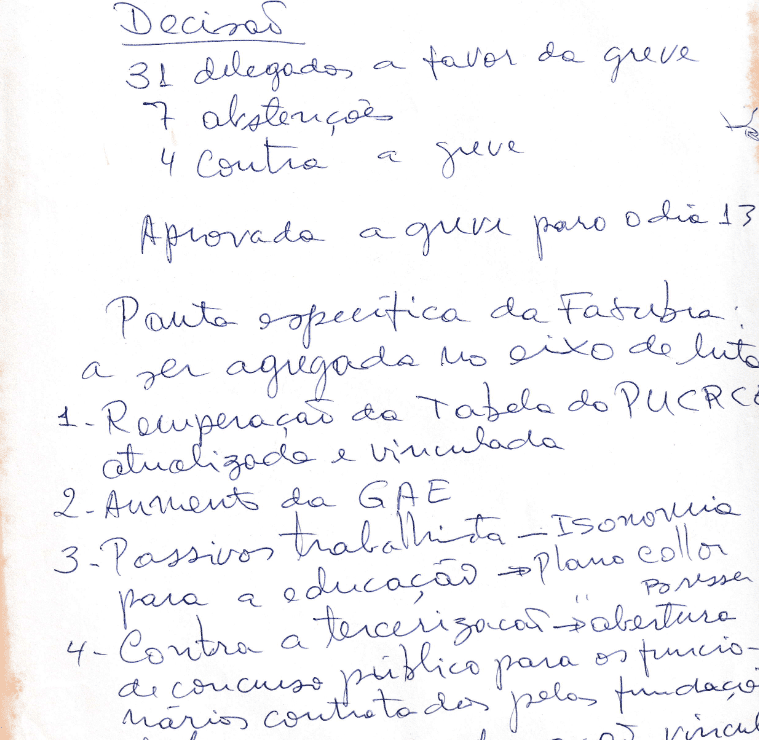 Decisão
31 delegados a favor da greve
7 abstenções
4 contra a greve
Aprovada a greve para o dia 13
Pauta específica da Fasubra:
a ser agregada no eixo de luta
1- Recuperação da Tabela do PUCRCE
atualizada e vinculada
2- Aumento da GAE
3- Passivos trabalhista - Isonomia
para a educação → Plano Collor
" Bresser
4- Contra a tercerização → abertura
de concurso público para os funcio-
nários contratados pelas fundaçõ
vincul